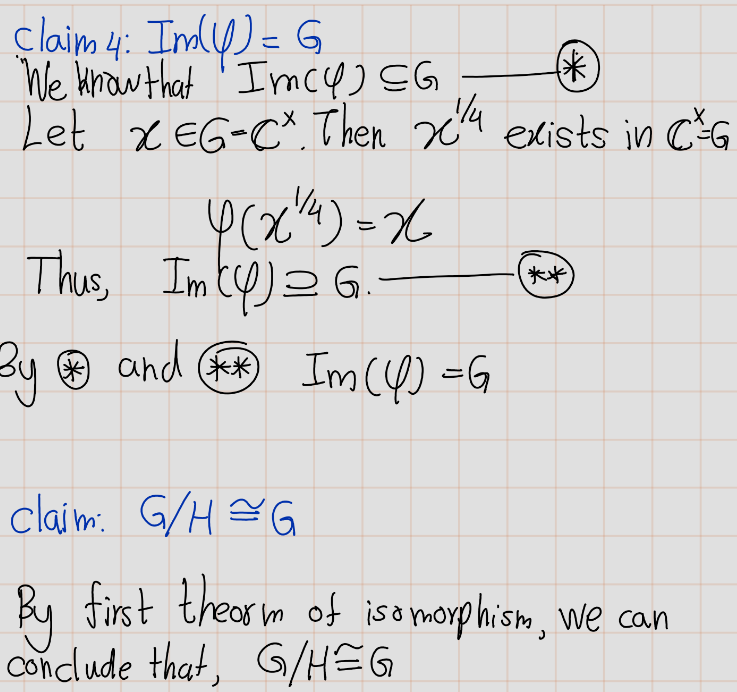 claim 4: Im(φ) = G
We know that Im(φ) ⊆ G ——— ⊛
Let x ∈ G = ℂˣ. Then x^{1/4} exists in ℂˣ = G
φ(x^{1/4}) = x
Thus, Im(φ) ⊇ G. ——— (**)
By ⊛ and (**) Im(φ) = G
claim: G/H ≅ G
By first theorm of isomorphism, we can
conclude that, G/H ≅ G